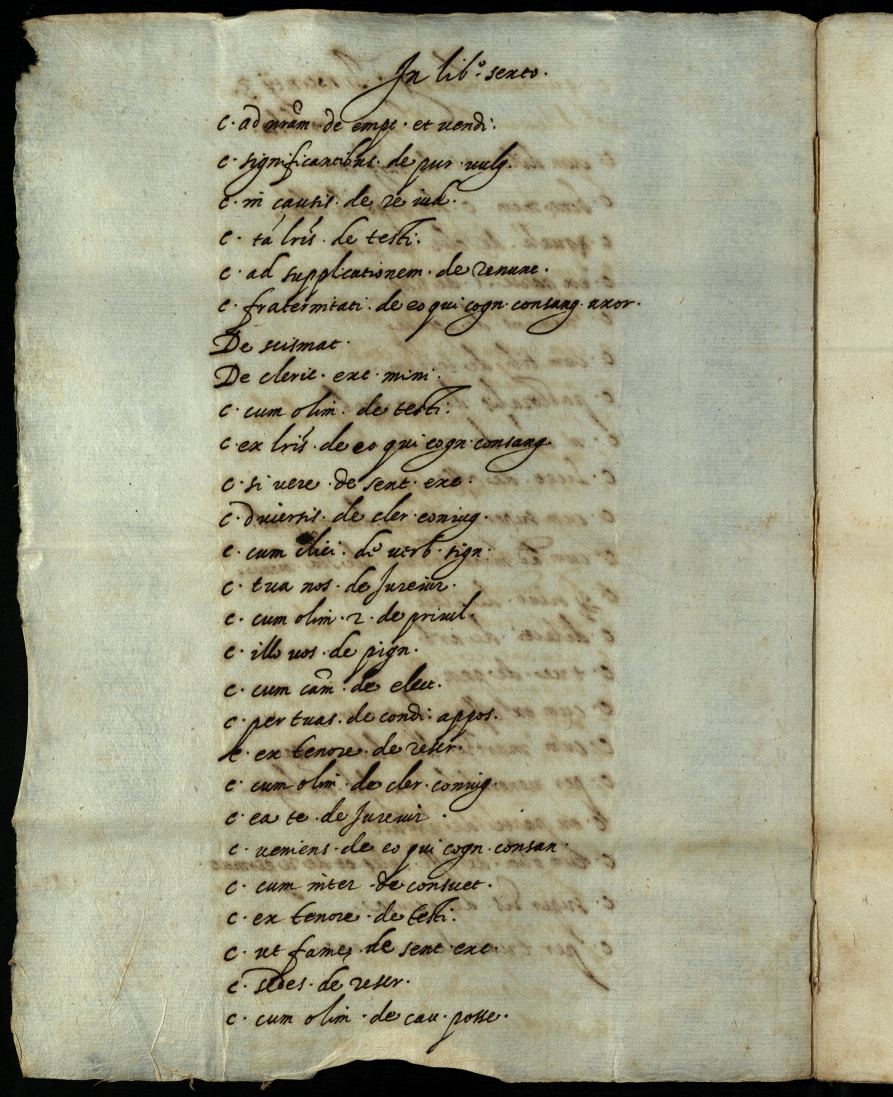 In lib.º sexto.
c. ad nr̃am. de empt. et vendi.
c. significantibus. de pur. vulg.
c. in causis. de re iud.
c. ta lr̃is. de testi.
c. ad supplicationem. de renunt.
c. fraternitati. de eo qui cogn. consang. uxor.
De scismat.
De cleric. exc. mini.
c. cum olim. de testi.
c. ex lr̃is. de eo qui cogn. consang.
c. si vere. de sent. exc.
c. diversis. de cler. coniug.
c. cum clici. de verb. sign.
c. tua nos. de Jureiur.
c. cum olim. 2. de privil.
c. illo vos. de pign.
c. cum cãm. de elect.
c. per tuas. de condi. appos.
c. ex tenore. de rescr.
c. cum olim. de cler. coniug.
c. ea te. de Jureiur.
c. veniens. de eo qui cogn. consan.
c. cum inter. de consuet.
c. ex tenore. de testi.
c. ut fame. de sent. exc.
c. sedes. de rescr.
c. cum olim. de cau. posse.